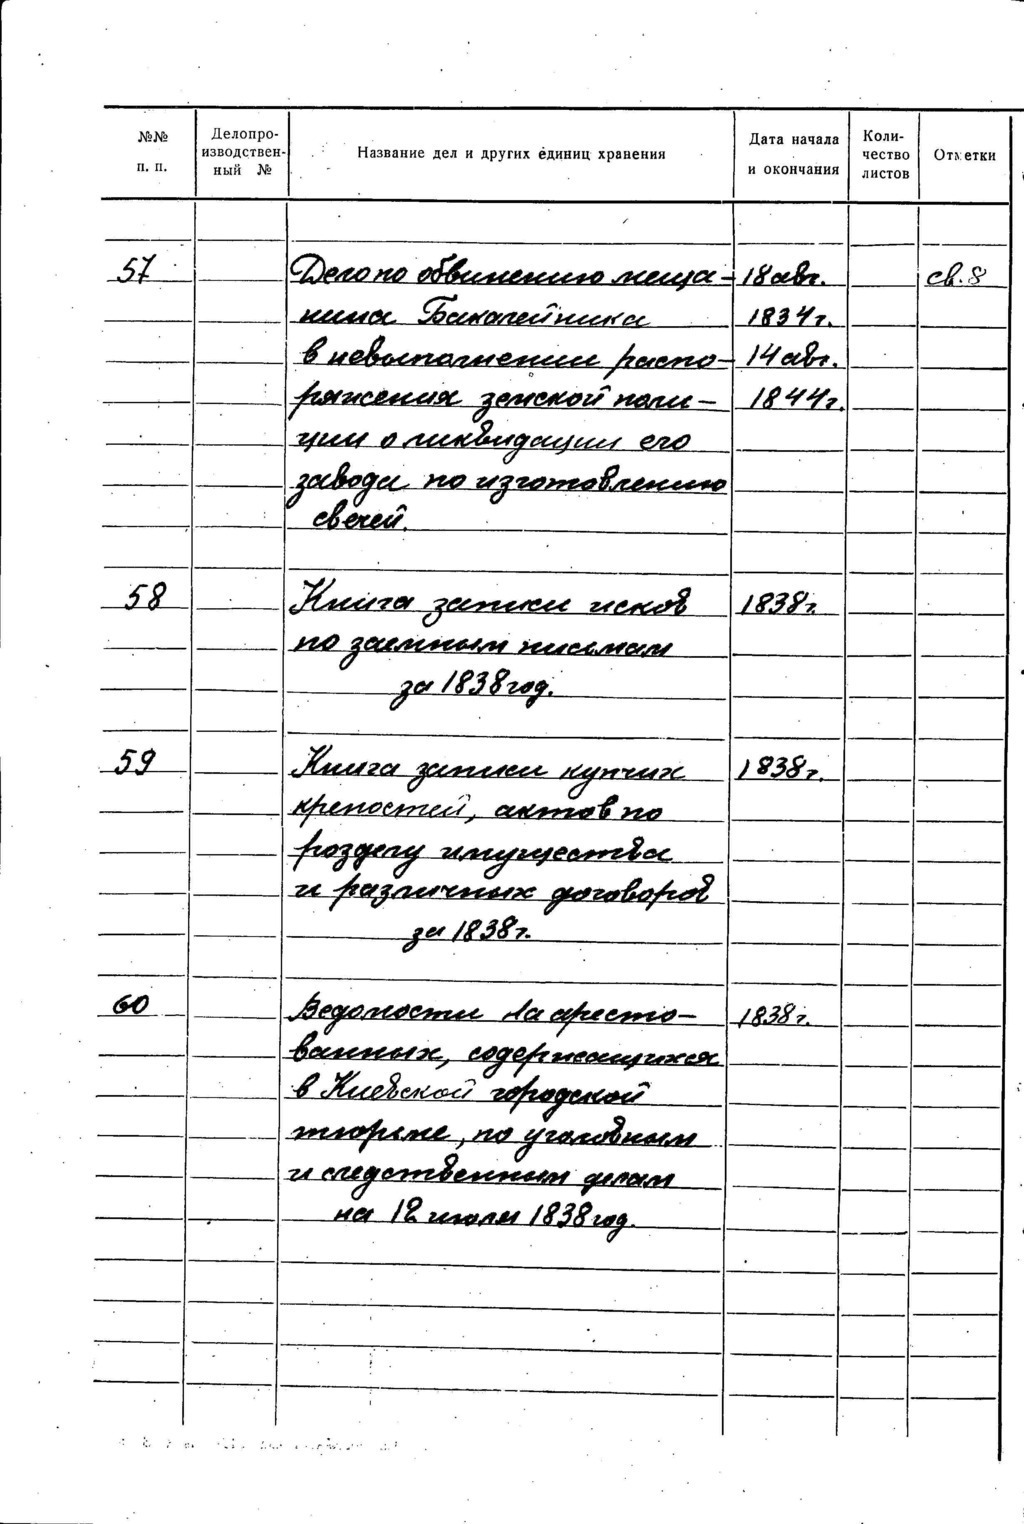 №№ п. п. Делопро-изводствен-ный № Название дел и других единиц хранения Дата начала и окончания Коли-чество листов Отметки
57 Дело по обвинению меща- 18 авг. св. 8
нина Бакалейника 1834 г.
в невыполнении распо- 14 авг.
ряжения земской поли- 1844 г.
ции о ликвидации его
завода по изготовлению
свечей.
58 Книга записи исков 1838 г.
по заемным письмам
за 1838 год.
59 Книга записи купчих 1838 г.
крепостей, актов по
розделу имущества
и различных договоров
за 1838 г.
60 Ведомости на аресто- 1838 г.
ванных, содержащихся
в Киевской городской
тюрьме, по уголовным
и следственным делам
на 12 июля 1838 год.